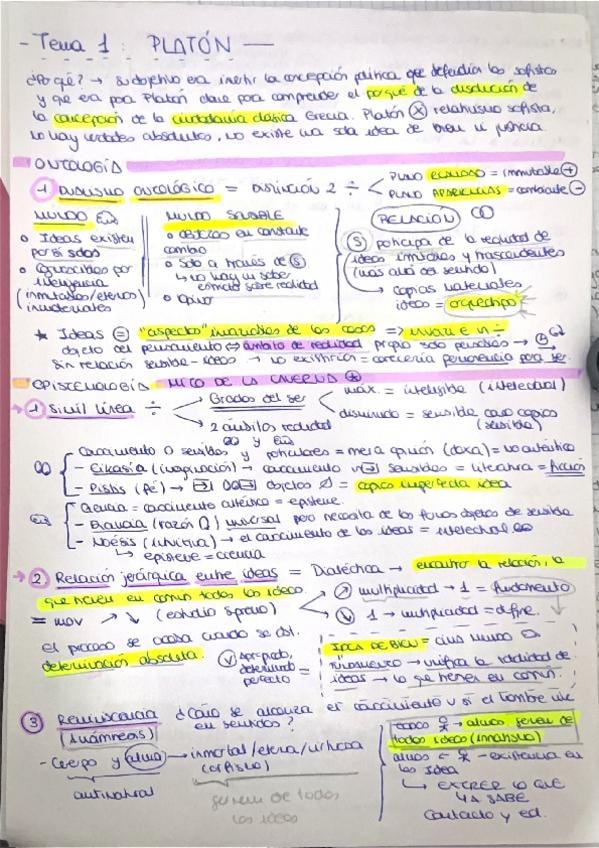 - Tema 1: PLATÓN -
¿Por qué? → Su objetivo era invertir la concepción política que defendían los sofistas
y que era para Platón clave para comprender el porqué de la disolución de
la concepción de la ciudadanía clásica Grecia. Platón ⓧ relativismo sofista,
no hay verdades absolutas, no existe una sola idea de bien ni justicia.
ONTOLOGÍA
→ 1 DUALISMO ONTOLÓGICO = DISTINCIÓN 2 ÷ < PLANO REALIDAD = inmutable ⊕
PLANO APARIENCIAS = cambiante ⊖
MUNDO
o Ideas existen
por sí solas
o Conocidas por
inteligencia
(inmutables/eternos)
inmateriales
MUNDO SENSIBLE
o objetos en constante
cambio
o Solo a través de Ⓢ
↳ no hay un saber
estricto sobre realidad
o Opinión
RELACIÓN
Ⓢ participa de la realidad de
ideas inmóviles y trascendentes
(más allá del sentido)
↳ copias materiales
ideas = arquetipo
* Ideas ⊜ "aspectos" invariables de las cosas =>
objeto del pensamiento ⇔ ámbito de realidad propia solo pensadas →
Sin relación sensible - ideas → no existirían = carecería permanencia para ser.
EPISTEMOLOGÍA MITO DE LA CAVERNA ⊕
→ 1 Símil línea ÷
Grados del ser
máx. = inteligible (intelectual)
disminuido = sensible como copias
(sensible)
2 ámbitos realidad
Conocimiento o sensibles y particulares = mera opinión (doxa) = no auténtico
- Eikasía (imaginación) → conocimiento sensibles = literatura = ficción
- Pistis (fe) → objetos = copia imperfecta idea
Ciencia = conocimiento auténtico = episteme.
- Dianoia (razón) universal pero necesita de los objetos de sensible
- Noésis (intuitiva) → el conocimiento de las ideas = intelectual
↳ episteme = ciencia
→ 2 Relación jerárquica entre ideas = Dialéctica → encuentra la relación, lo
que tienen en común todas las ideas.
= mov ↗ ↘ (estudio
multiplicidad → 1 = fundamento
1 → multiplicidad = define.
el proceso se acaba cuando se obt.
determinación absoluta.
apropiado,
determinado
perfecto =
IDEA DE BIEN = cima mundo
FUNDAMENTO → unifica la totalidad de
ideas → lo que tienen en común.
3 Reminiscencia
(Anámnesis)
¿Cómo se alcanza el conocimiento si el hombre vive
en sentidos?
- Cuerpo y alma → inmortal/eterna/
(orfismo)
antinatural
de todas
las ideas
→ almas
todas ideas (innatismo)
almas - existencia en
las idea
↳ EXTRAER LO QUE
YA SABE
contacto y ed.